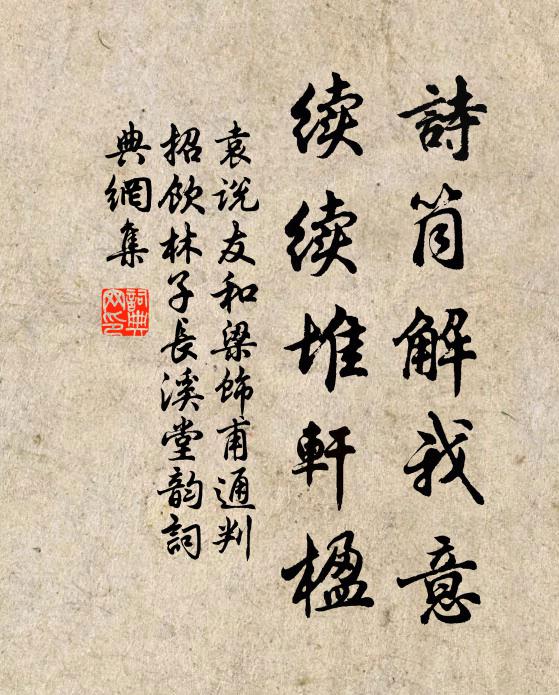 詩筒解我意
续续堆軒楹
袁说友和梁饰甫通判
招饮林子長溪堂韵詞
典網集
詞典網印